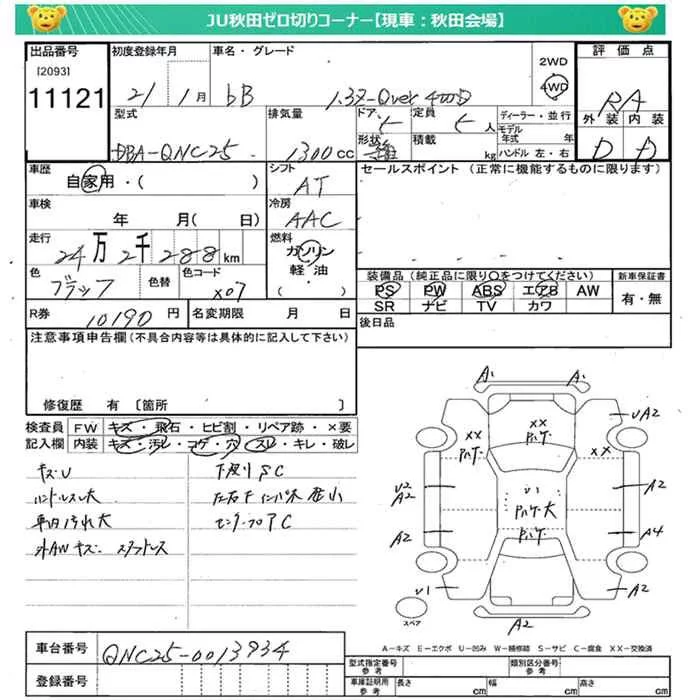 JU秋田ゼロ切りコーナー【現車：秋田会場】
出品番号 初度登録年月 車名・グレード 2WD 4WD 評価点
[2093]
11121 21 1月 bB 1.3Z-Qver 4WD RA
型式 排気量 ドア 定員 人 ディーラー・並行 外装 内装
DBA-QNC25 1300cc 形状 積載 kg モデル年式 年 ハンドル 左・右 D D
車歴 シフト セールスポイント (正常に機能するものに限ります)
自家用・( ) AT
車検 冷房
年 月( 日) AAC
走行 燃料
24万2千288km ガソリン
軽・油
・( )
色 色替 色コード
ブラック X07
装備品(純正品に限り○をつけてください) 新車保証書
PS PW ABS エアB AW 有・無
SR ナビ TV カワ
R券 10190円 名変期限 月 日 後日品
注意事項申告欄(不具合内容等は具体的に記入して下さい)
修復歴 有 [箇所 ]
検査員 FW キズ・飛石・ヒビ割・リペア跡・×要
記入欄 内装 キズ・汚レ・コゲ・穴・スレ・キレ・破レ
キズU 下廻りSC
ハンドルスレ大
車内汚れ大 C
外AWキズ スタッドレス
A1 A1
UA2
XX XX
ハゲ ハゲ XX
U2 U1 A2
A2 ハゲ大
A2 ハゲ A4
U1 A2
スペア A2
A－キズ E－エクボ U－凹み W－補修跡 S－サビ C－腐食 XX－交換済
車台番号 QNC25-0013934
登録番号
型式指定番号 参考 類別区分番号 参考
車庫証明用 参考 長さ cm 幅 cm 高さ cm